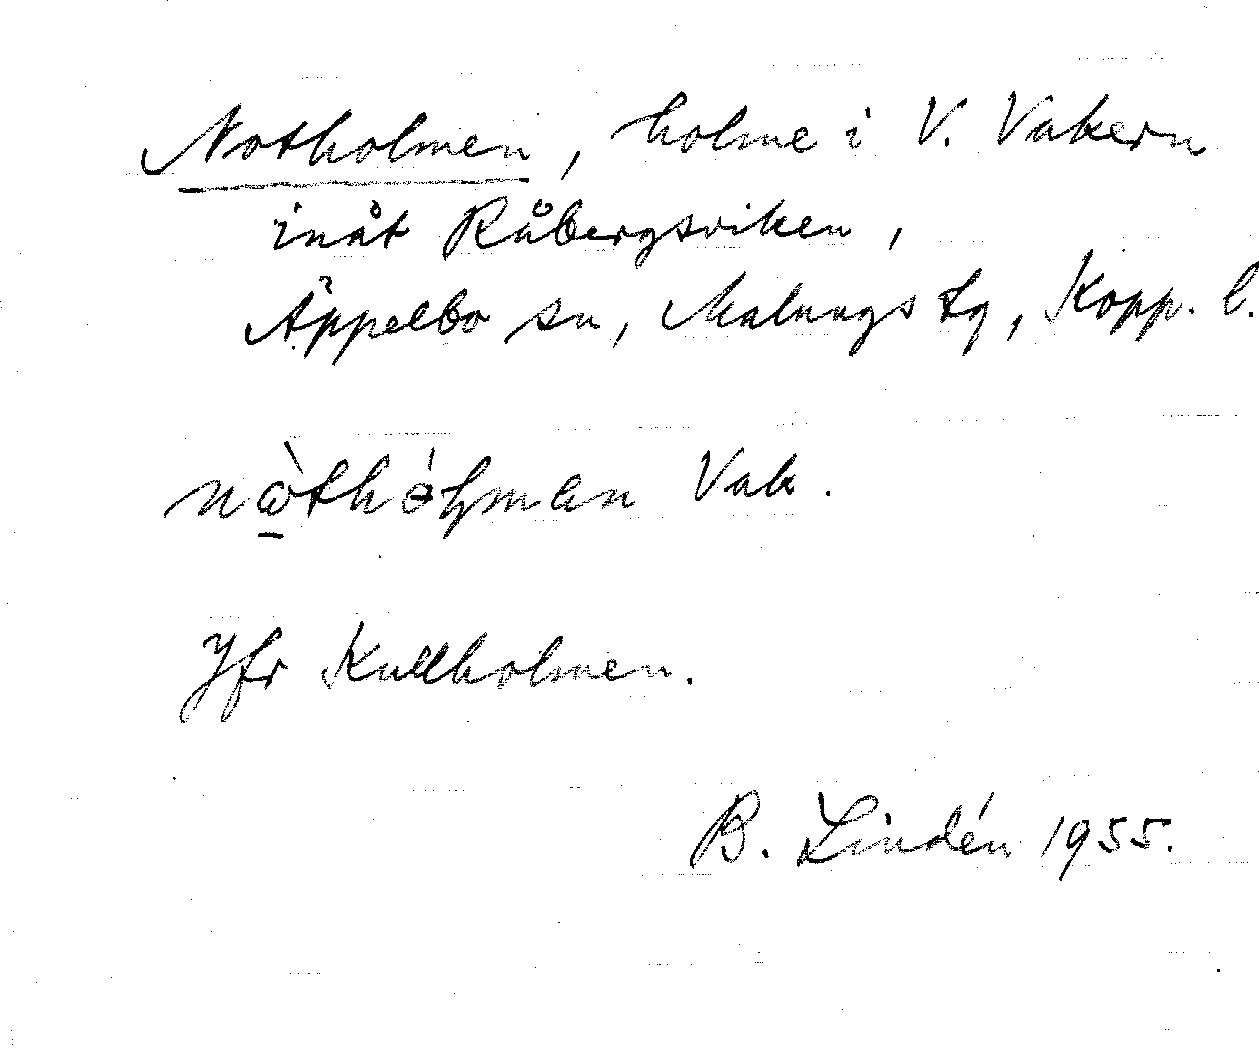 Notholmen, holme i V. Vakern
inåt Råbergsviken,
Äppelbo sn, Malungs tg, Kopp. l.
Vak.
Jfr Kullholmen.
B. Lindén 1955.